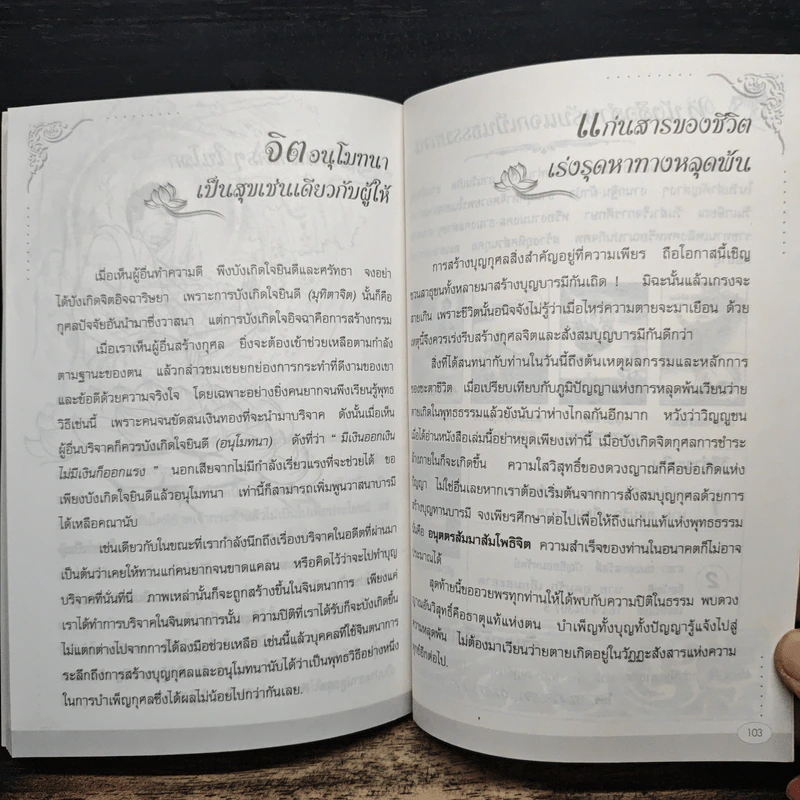 จิตอนุโมทนา
เป็นสุขเช่นเดียวกับผู้ให้
เมื่อเห็นผู้อื่นทำความดี พึงบังเกิดใจยินดีและศรัทธา จงอย่า
ได้บังเกิดจิตอิจฉาริษยา เพราะการบังเกิดใจยินดี (มุทิตาจิต) นั้นก็คือ
กุศลปัจจัยอันนำมาซึ่งวาสนา แต่การบังเกิดใจอิจฉาคือการสร้างกรรม
เมื่อเราเห็นผู้อื่นสร้างกุศล ยิ่งจะต้องเข้าช่วยเหลือตามกำลัง
ตามฐานะของตน แล้วกล่าวชมเชยยกย่องการกระทำที่ดีงามของเขา
และข้อดีด้วยความจริงใจ โดยเฉพาะอย่างยิ่งคนยากจนพึงเรียนรู้พุทธ
วิธีเช่นนี้ เพราะคนจนขัดสนเงินทองที่จะนำมาบริจาค ดังนั้นเมื่อเห็น
ผู้อื่นบริจาคก็ควรบังเกิดใจยินดี (อนุโมทนา) ดังที่ว่า “ มีเงินออกเงิน
ไม่มีเงินก็ออกแรง ” นอกเสียจากไม่มีกำลังเรี่ยวแรงที่จะช่วยได้ ขอ
เพียงบังเกิดใจยินดีแล้วอนุโมทนา เท่านี้ก็สามารถเพิ่มพูนวาสนาบารมี
ได้เหลือคณานับ
เช่นเดียวกับในขณะที่เรากำลังนึกถึงเรื่องบริจาคในอดีตที่ผ่านมา
เป็นต้นว่าเคยให้ทานแก่คนยากจนขาดแคลน หรือคิดไว้ว่าจะไปทำบุญ
บริจาคที่นั่นที่นี่ ภาพเหล่านั้นก็จะถูกสร้างขึ้นในจินตนาการ เพียงแค่
เราได้ทำการบริจาคในจินตนาการนั้น ความปิติที่เราได้รับก็จะบังเกิดขึ้น
ไม่แตกต่างไปจากการได้ลงมือช่วยเหลือ เช่นนี้แล้วบุคคลที่ใช้จินตนาการ
ระลึกถึงการสร้างบุญกุศลและอนุโมทนานับได้ว่าเป็นพุทธวิธีอย่างหนึ่ง
ในการบำเพ็ญกุศลซึ่งได้ผลไม่น้อยไปกว่ากันเลย.
แก่นสารของชีวิต
เร่งรุดหาทางหลุดพ้น
การสร้างบุญกุศลสิ่งสำคัญอยู่ที่ความเพียร ถือโอกาสนี้เชิญ
ชวนสาธุชนทั้งหลายมาสร้างบุญบารมีกันเถิด ! มิฉะนั้นแล้วเกรงจะ
สายเกิน เพราะชีวิตนั้นอนิจจังไม่รู้ว่าเมื่อไหร่ความตายจะมาเยือน ด้วย
เหตุนี้จึงควรเร่งรีบสร้างกุศลจิตและสั่งสมบุญบารมีกันดีกว่า
สิ่งที่ได้สนทนากับท่านในวันนี้ถึงต้นเหตุผลกรรมและหลักการ
ของชะตาชีวิต เมื่อเปรียบเทียบกับภูมิปัญญาแห่งการหลุดพ้นเวียนว่าย
ตายเกิดในพุทธธรรมแล้วยังนับว่าห่างไกลกันอีกมาก หวังว่าวิญญูชน
เมื่อได้อ่านหนังสือเล่มนี้อย่าหยุดเพียงเท่านี้ เมื่อบังเกิดจิตกุศลการชำระ
ล้างภายในก็จะเกิดขึ้น ความใสวิสุทธิ์ของดวงญาณก็คือบ่อเกิดแห่ง
ปัญญา ไม่ใช่อื่นเลยหากเราต้องเริ่มต้นจากการสั่งสมบุญกุศลด้วยการ
สร้างบุญทานบารมี จงเพียรศึกษาต่อไปเพื่อให้ถึงแก่นแท้แห่งพุทธธรรม
นั่นคือ อนุตตรสัมมาสัมโพธิจิต ความสำเร็จของท่านในอนาคตก็ไม่อาจ
ประมาณได้
สุดท้ายนี้ขออวยพรทุกท่านให้ได้พบกับความปิติในธรรม พบดวง
ญาณอันวิสุทธิ์คือธาตุแท้แห่งตน บำเพ็ญทั้งบุญทั้งปัญญารู้แจ้งไปสู่
ความหลุดพ้น ไม่ต้องมาเวียนว่ายตายเกิดอยู่ในวัฏฏะสังสารแห่งความ
ทุกข์อีกต่อไป.
103